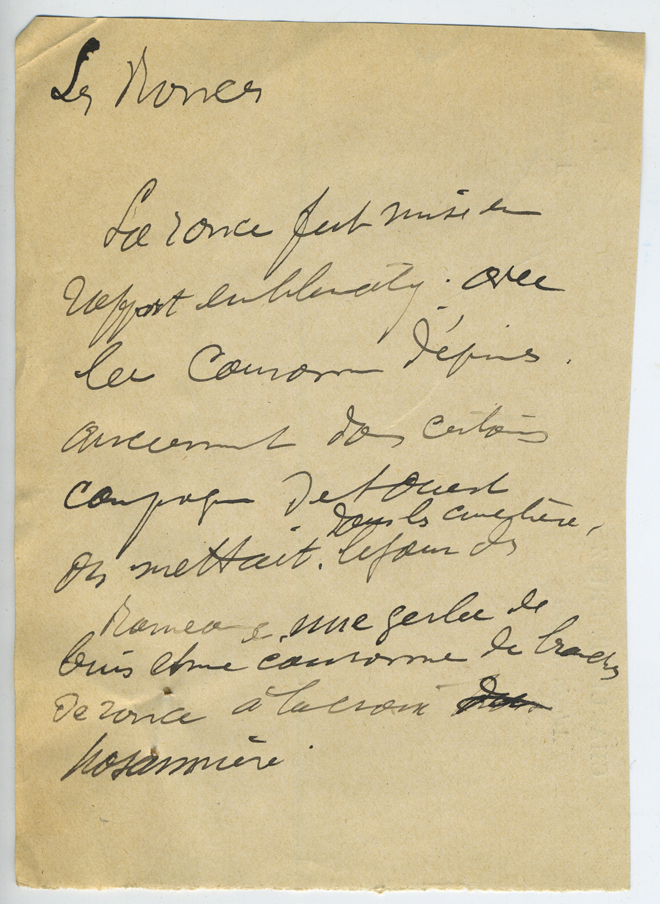 Les Ronces
La ronce fut mise en
rapport avec
la couronne d'épines.
anciennement dans certaines
campagnes de l'ouest
dans les cimetières,
on mettait. le jour des
Rameaux, une gerbe de
buis et une couronne de branches
de ronce à la croix
hosannière.